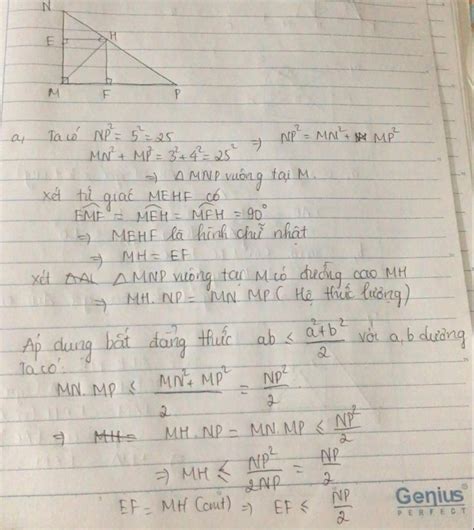 N
E H
M F P
a, Ta có NP² = 5² = 25 ⇒ NP² = MN² + MP²
MN² + MP² = 3² + 4² = 25²
⇒ △MNP vuông tại M.
xét tứ giác MEHF có
EMF = MEH = MFH = 90°
⇒ MEHF là hình chữ nhật
⇒ MH = EF
xét △MNP vuông tại M có đường cao MH
⇒ MH.NP = MN.MP (Hệ thức lượng)
Áp dụng bất đẳng thức ab ≤ (a²+b²)/2 với a,b dương
Ta có:
MN.MP ≤ (MN² + MP²)/2 = NP²/2
⇒ MH= MH.NP = MN.MP ≤ NP²/2
⇒ MH ≤ NP²/2NP = NP/2
EF = MH (cmt) ⇒ EF ≤ NP/2
Genius®
PERFECT